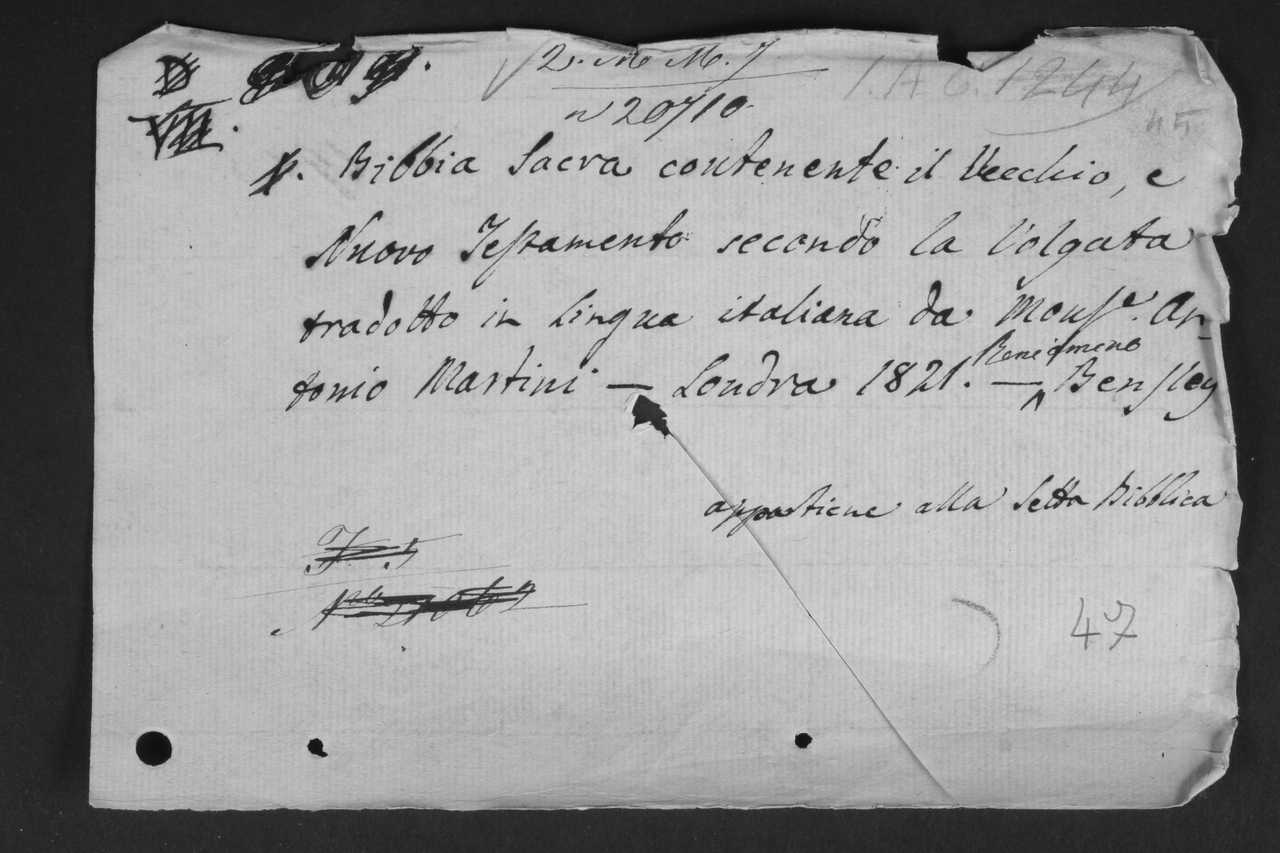 2. M M. 7
I. A C. 1244
n 20710
45
p. Bibbia Sacra contenente il Vecchio, e
Nuovo Testamento secondo la Volgata
tradotto in lingua italiana da Monsr. An-
tonio Martini — Londra 1821. — Beniamino Bensley
appartiene alla Setta Biblica
47